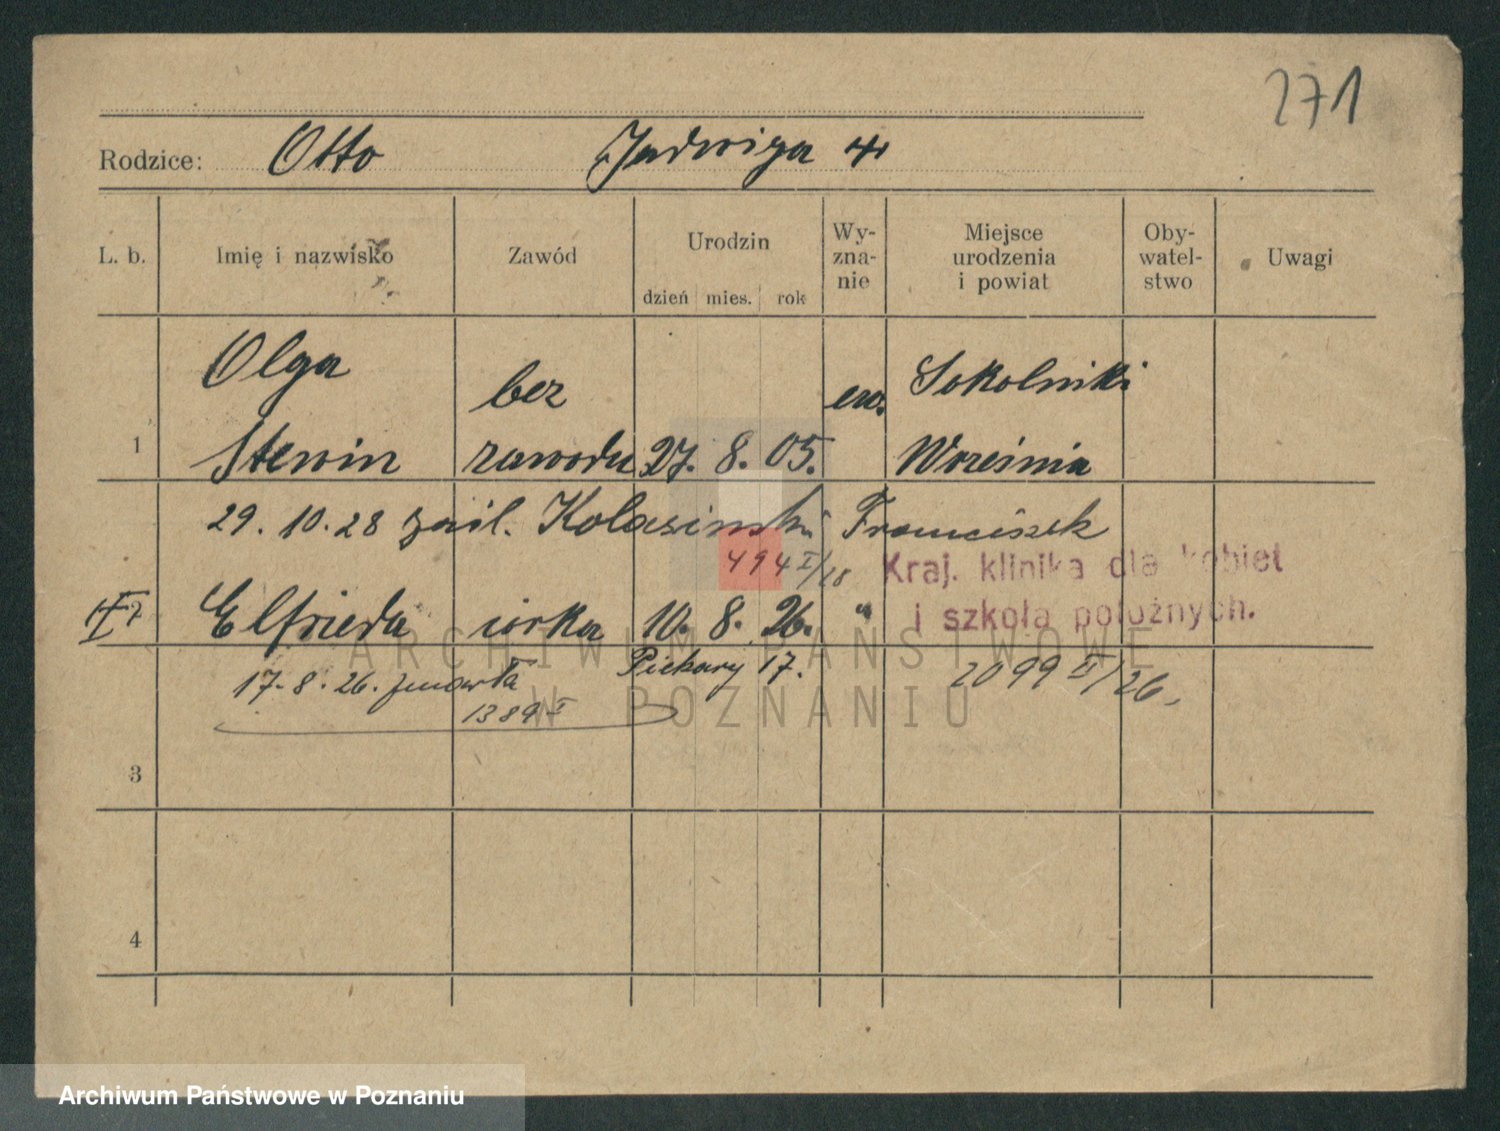 271
Rodzice: Otto Jadwiga
L. b. Imię i nazwisko Zawód Urodzin dzień mies. rok Wy-zna-nie Miejsce urodzenia i powiat Oby-watel-stwo Uwagi
Olga bez ew. Sokolniki
1 Stewin zawodu 27. 8. 05. Września
29. 10. 28 Kolasinski Franciszek
494 I/28
Kraj. klinika dla kobiet
i szkoła położnych.
Elfrieda córka 10. 8. 26. "
17. 8. 26. zmarła Piekary 17. 2099 II/26.
1389 I
3
4
ARCHIWUM PAŃSTWOWE
W POZNANIU
Archiwum Państwowe w Poznaniu